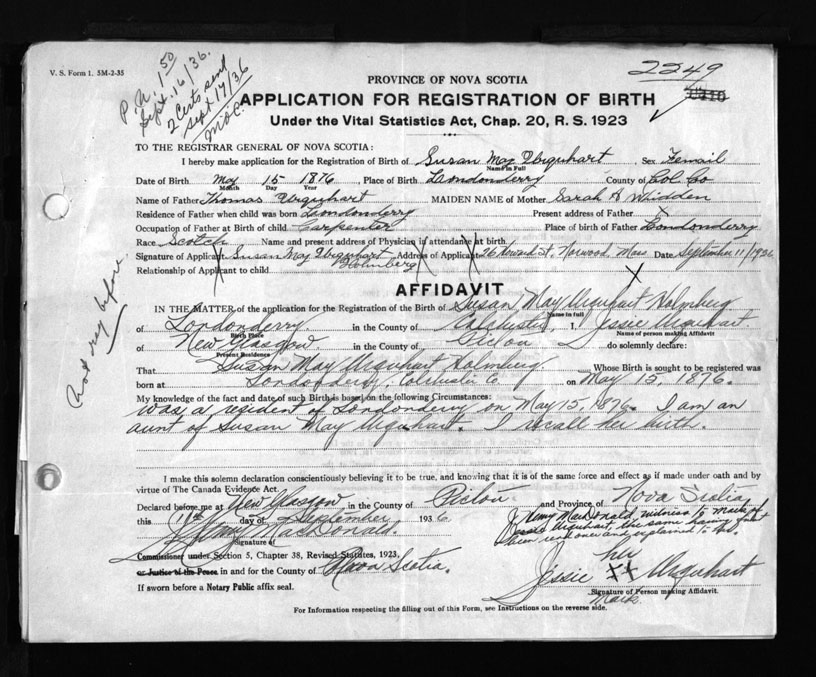 V. S. Form 1. 5M-2-35
P.N. 1.50
Sept. 16/36.
2 Certs send
Sept 17/36
M.O.C.
2249
PROVINCE OF NOVA SCOTIA
APPLICATION FOR REGISTRATION OF BIRTH
Under the Vital Statistics Act, Chap. 20, R. S. 1923
TO THE REGISTRAR GENERAL OF NOVA SCOTIA:
I hereby make application for the Registration of Birth of Susan May Urquhart Sex Femail
Name in Full
Date of Birth May 15 1876, Place of Birth Londonderry County of Col Co
Month Day Year
Name of Father Thomas Urquhart MAIDEN NAME of Mother Sarah A Whidden
Residence of Father when child was born Londonderry Present address of Father X
Occupation of Father at Birth of child Carpenter Place of birth of Father Londonderry
Race Scotch Name and present address of Physician if attendance at birth
Signature of Applicant Susan May Urquhart Holmberg Address of Applicant 26 Howard St, Norwood, Mass Date September 11/1936
Relationship of Applicant to child X
Not reg before.
AFFIDAVIT
IN THE MATTER of the application for the Registration of the Birth of Susan May Urquhart Holmberg
Name in full
of Londonderry in the County of Colchester, I, Jessie Urquhart
Birth Place Name of person making Affidavit
of New Glasgow in the County of Pictou do solemnly declare:
Present Residence
That Susan May Urquhart Holmberg Whose Birth is sought to be registered was
born at Londonderry, Colchester Co. on May 15, 1876.
My knowledge of the fact and date of such Birth is based on the following Circumstances:
Was a resident of Londonderry on May 15, 1876. I am an
aunt of Susan May Urquhart. I recall her birth.
I make this solemn declaration conscientiously believing it to be true, and knowing that it is of the same force and effect as if made under oath and by
virtue of The Canada Evidence Act.
Declared before me at New Glasgow, in the County of Pictou and Province of Nova Scotia
this day of September 1936.
MacDonald.
Signature of
Commissioner under Section 5, Chapter 38, Revised Statutes, 1923,
or Justice of the Peace in and for the County of Nova Scotia.
If sworn before a Notary Public affix seal.
MacDonald, witness to mark of
Jessie Urquhart, the same having first
been read over and explained to her.
her
Jessie XX Urquhart
Signature of Person making Affidavit.
Mark.
For Information respecting the filling out of this Form, see Instructions on the reverse side.